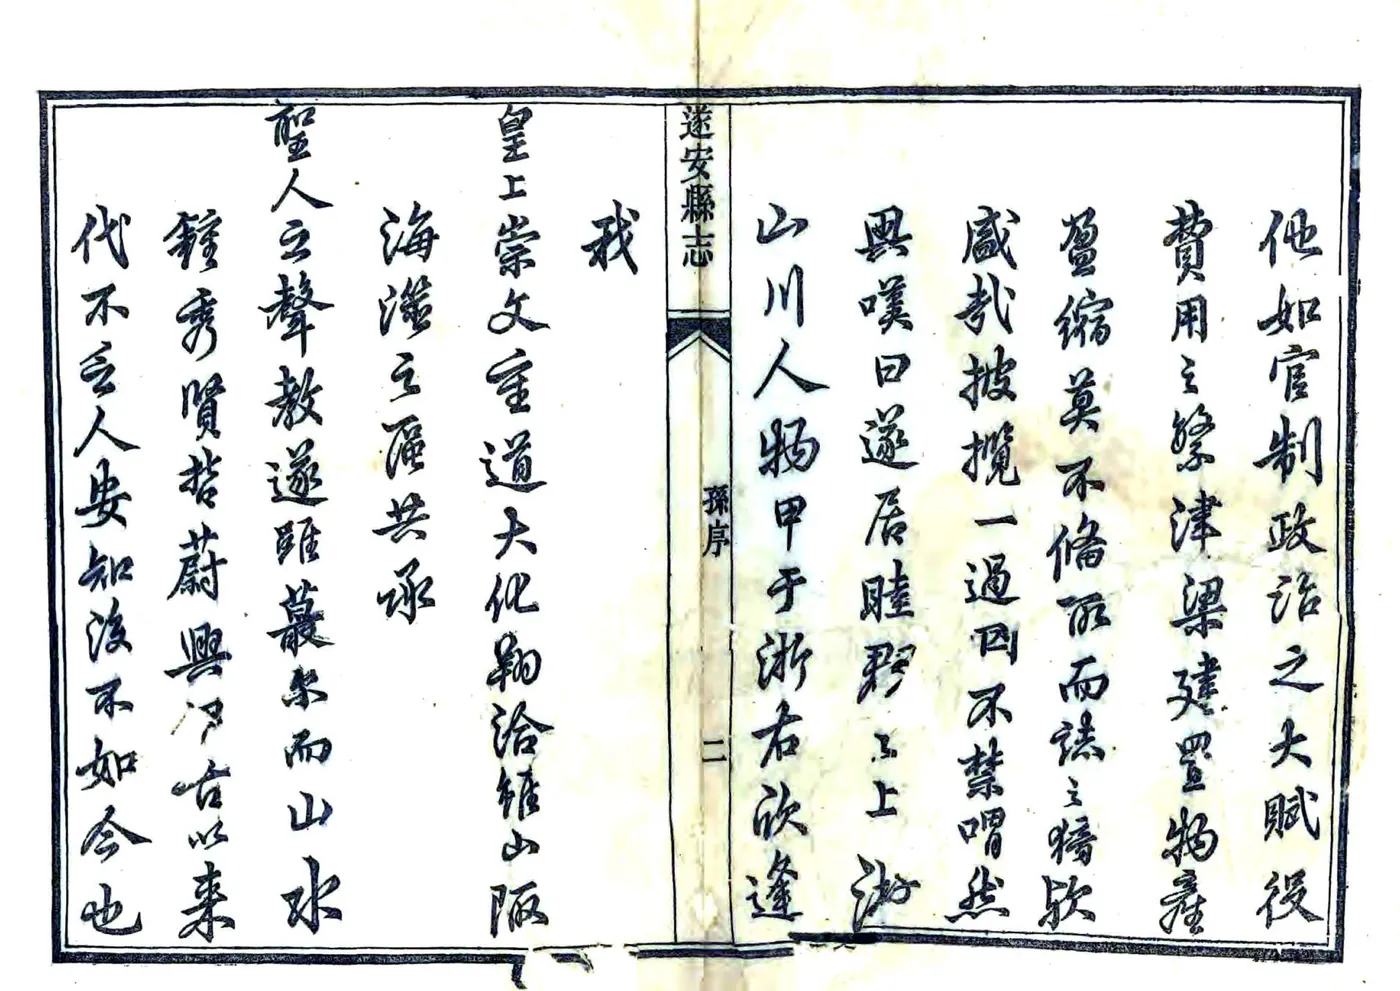 他如官制政治之大賦役
費用之繁津梁建置物產
盈縮莫不脩所而誌之猗歟
盛哉披攬一過因不禁喟然
興嘆曰遂居睦郡之上游
山川人物甲于浙右欣逢
遂安縣志
孫序
二
我
皇上崇文重道大化翔洽雖山陬
海澨之區共承
聖人之聲教遂雖蕞尔而山水
鍾秀賢哲蔚興 古以来
代不乏人安知後不如今也